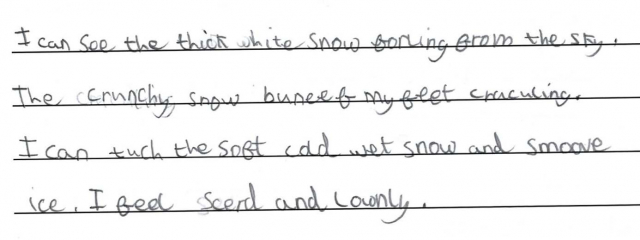 I can see the thick white snow forling from the sky.
The crunchy snow buneef my feet cracculing.
I can tuch the soft cold wet snow and smoove
ice. I feel scerd and lownly.